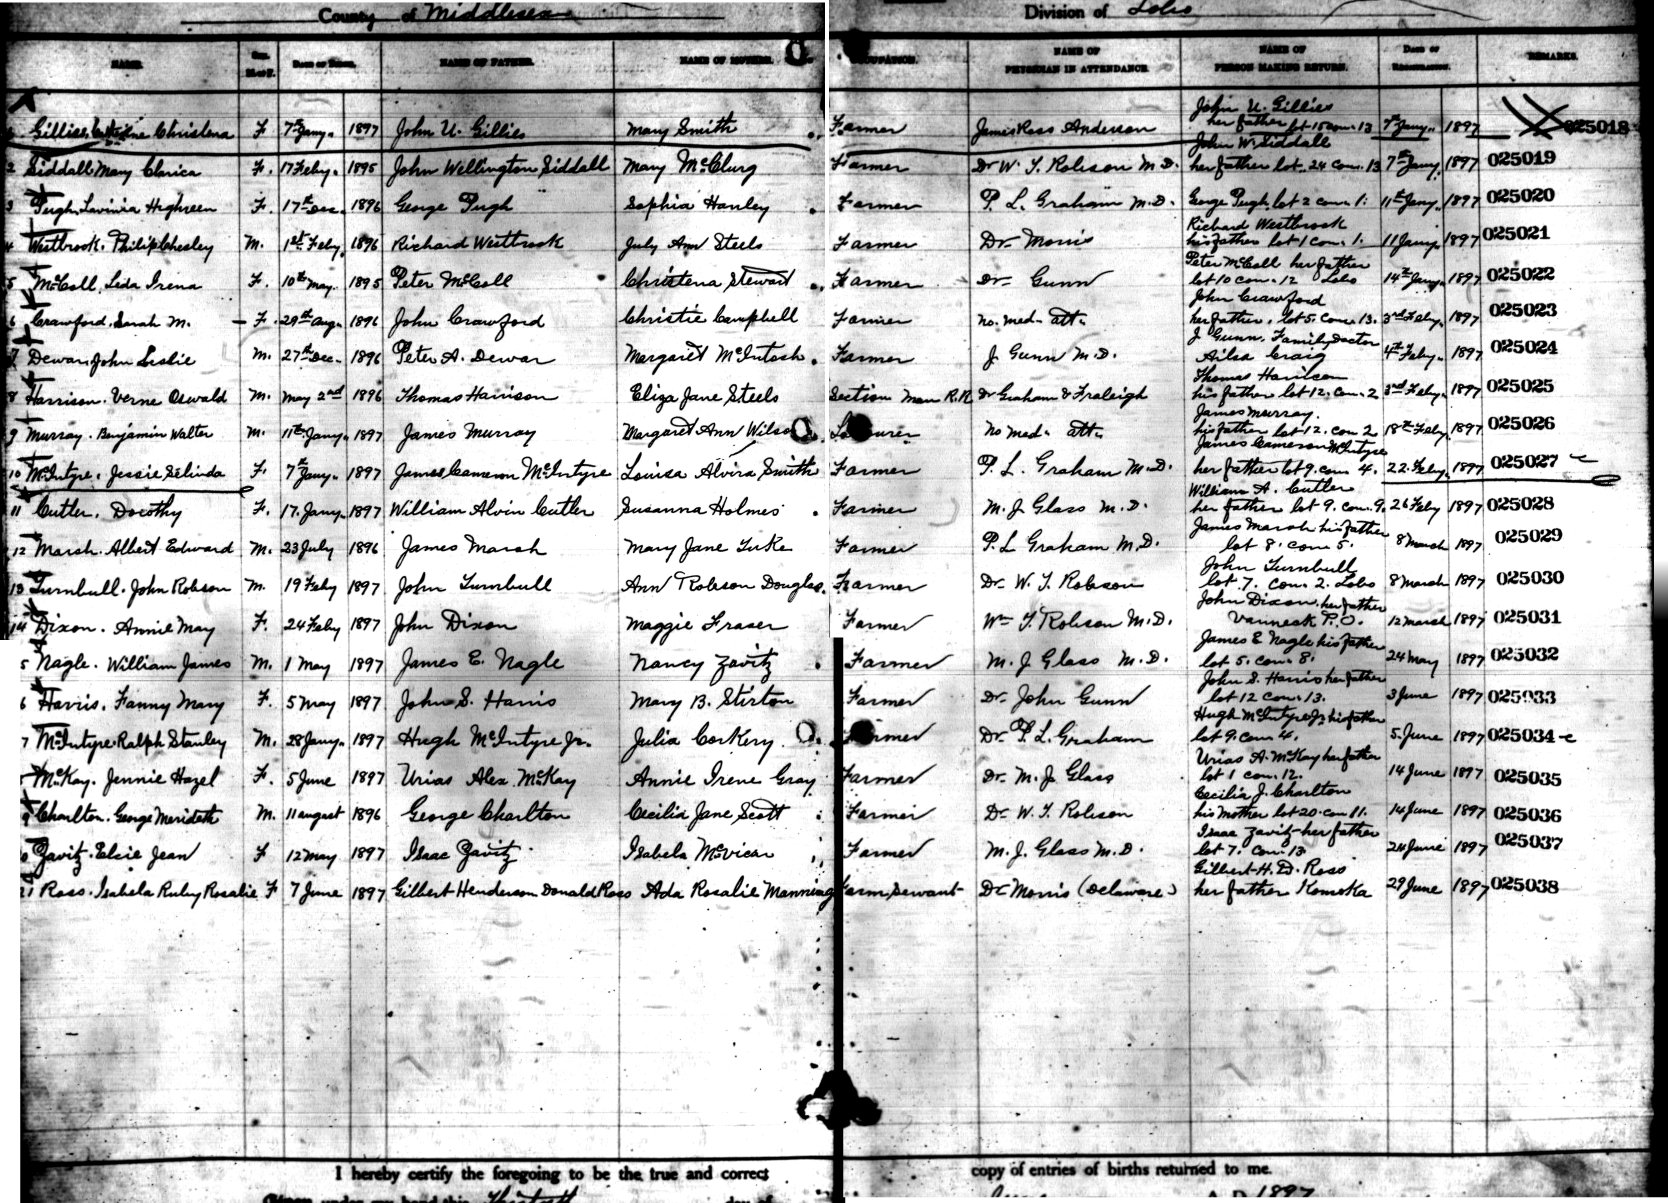 County of Middlesex Division of Lobo
NAME. Sex. M. or F. Date of Birth. NAME OF FATHER. NAME OF MOTHER. OCCUPATION. NAME OF PHYSICIAN IN ATTENDANCE. NAME OF PERSON MAKING RETURN. Date of Registration. REMARKS.
Gillies, Christena F. 7th Jany. 1897 John U. Gillies Mary Smith Farmer James Ross Anderson John U. Gillies her father lot 15 con. 13 7th Jany. 1897 025018
2 Siddall Mary Clarica F. 17 Feby. 1895 John Wellington Siddall Mary McClurg Farmer Dr W. T. Robson M.D. John W. Siddall her father lot 24 con. 13 7th Jany. 1897 025019
3 Pugh, Lavinia F. 17th Dec. 1896 George Pugh Sophia Hanley Farmer P. L. Graham M.D. George Pugh lot 2 con. 1. 11th Jany. 1897 025020
4 Westbrook. Philip Chesley M. 1st Feby. 1896 Richard Westbrook July Ann Steels Farmer Dr Morris Richard Westbrook his father lot 1 con. 1. 11 Jany. 1897 025021
5 McColl, Leda Irena F. 10th May. 1895 Peter McColl Christena Stewart Farmer Dr Gunn Peter McColl her father lot 10 con. 12 Lobo 14th Jany. 1897 025022
6 Crawford, Sarah M. F. 29th Aug. 1896 John Crawford Christie Campbell Farmer no. med. att. John Crawford her father, lot 5. Con. 13. 3rd Feby. 1897 025023
7 Dewar, John Leslie M. 27th Dec. 1896 Peter A. Dewar Margaret McIntosh. Farmer J. Gunn M.D. J. Gunn, Family Doctor Ailsa Craig 4th Feby. 1897 025024
8 Harrison. Verne Oswald M. May 2nd 1896 Thomas Harrison Eliza Jane Steels Section Man R.R. Dr Graham & Fraleigh Thomas Harrison his father lot 12. con. 2 3rd Feby. 1897 025025
9 Murray. Benjamin Walter M. 11th Jany. 1897 James Murray Margaret Ann Wilson Labourer No med. att. James Murray. his father lot 12. con 2 18th Feby. 1897 025026
10 McIntyre. Jessie Selinda F. 7th Jany. 1897 James Cameron McIntyre Louisa Alvira Smith Farmer P. L. Graham M.D. James Cameron McIntyre her father lot 9. con 4. 22. Feby. 1897 025027
11 Cutler. Dorothy F. 17. Jany. 1897 William Alvin Cutler Susanna Holmes Farmer M. J. Glass M.D. William A. Cutler her father lot 9. con. 9. 26 Feby 1897 025028
12 Marsh. Albert Edward M. 23 July 1896 James Marsh Mary Jane Tuke Farmer P. L Graham M.D. James Marsh his father lot 8. con 5. 8 March 1897 025029
13 Turnbull. John Robson M. 19 Feby 1897 John Turnbull Ann Robson Douglas. Farmer Dr. W. T. Robson John Turnbull lot 7. con. 2. Lobo 8 March 1897 025030
14 Dixon. Annie May F. 24 Feby 1897 John Dixon Maggie Fraser Farmer Wm T. Robson M.D. John Dixon, her father Vanneck P.O. 12 March 1897 025031
5 Nagle. William James M. 1 May 1897 James E. Nagle Nancy Zavitz Farmer M. J Glass M.D. James E Nagle his father lot 5. con. 8. 24 May 1897 025032
6 Harris. Fanny Mary F. 5 May 1897 John S. Harris Mary B. Stirton Farmer Dr. John Gunn John S. Harris her father lot 12 con. 13. 3 June 1897 025033
7 McIntyre Ralph Stanley M. 28 Jany. 1897 Hugh McIntyre Jr. Julia Corkery. Farmer Dr. P. L. Graham Hugh McIntyre Jr his father lot 9. con 4. 5 June 1897 025034
McKay. Jennie Hazel F. 5 June 1897 Urias Alex. McKay Annie Irene Gray Farmer Dr. M. J. Glass Urias A. McKay her father lot 1 con. 12. 14 June 1897 025035
9 Charlton. George Merideth M. 11 august 1896 George Charlton Cecilia Jane Scott Farmer Dr W. T. Robson Cecilia J. Charlton his Mother lot 20. con 11. 14 June 1897 025036
Zavitz. Elsie Jean F 12 May 1897 Isaac Zavitz Isabela McVicar Farmer M. J. Glass M.D. Isaac Zavitz her father lot 7. con. 13 24 June 1897 025037
21 Ross. Isabela Ruby Rosalie F 7 June 1897 Gilbert Henderson Donald Ross Ada Rosalie Manning Farm Servant Dr Morris (Delaware) Gilbert H. D. Ross her father Komoka 29 June 1897 025038
I hereby certify the foregoing to be the true and correct copy of entries of births returned to me.
Given under my hand this Thirtieth day of A.D. 1897